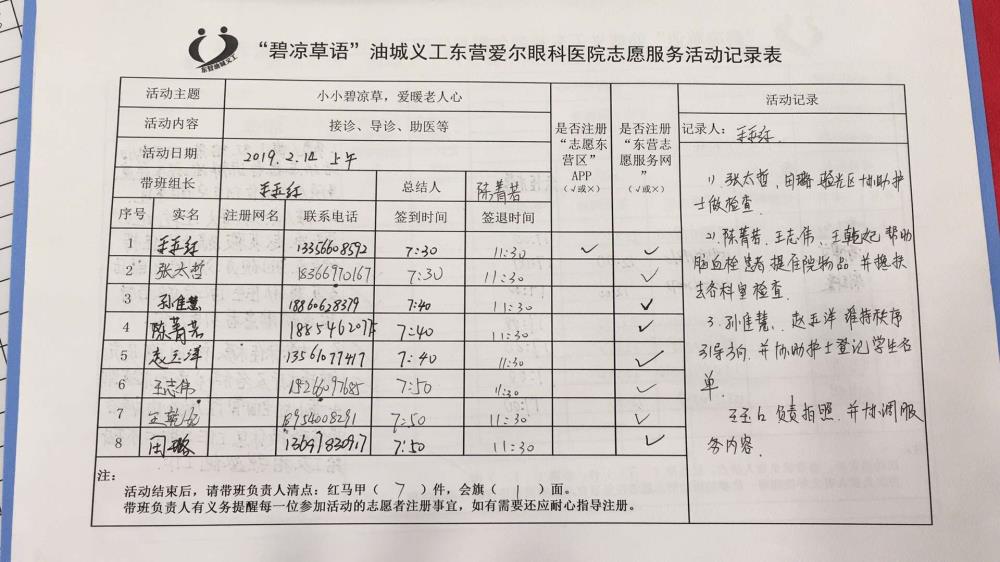 东营油城义工
“碧凉草语”油城义工东营爱尔眼科医院志愿服务活动记录表
活动主题 小小碧凉草，爱暖老人心
活动内容 接诊、导诊、助医等
活动日期 2019.2.14 上午
带班组长 总结人 陈菁若
序号 实名 注册网名 联系电话 签到时间 签退时间
是否注册“志愿东营区”APP（√或×）
是否注册“东营志愿服务网”（√或×）
1 13356608592 7:30 11:30 ✓ ✓
2 张太哲 18366970167 7:30 11:30 ✓
3 孙佳慧 18860628379 7:40 11:30 ✓
4 陈菁若 7:40 11:30 ✓
5 赵玉洋 13561077417 7:40 11:30 ✓
6 王志伟 7:50 11:30 ✓
7 王乾妃 18954008291 7:50 11:30 ✓
8 田璐 13697830917 7:50 11:30 ✓
注：
活动结束后，请带班负责人清点：红马甲（ 7 ）件，会旗（ ）面。
带班负责人有义务提醒每一位参加活动的志愿者注册事宜，如有需要还应耐心指导注册。
活动记录
记录人：
1). 张太哲、田璐 验光区协助护
士做检查.
2). 陈菁若、王志伟、王乾妃 帮助
患者提住院物品.并搀扶
去各科室检查.
3. 孙佳慧、赵玉洋 维持秩序
引导方向.并协助护士登记学生名
单.
负责拍照.并协调服
务内容.